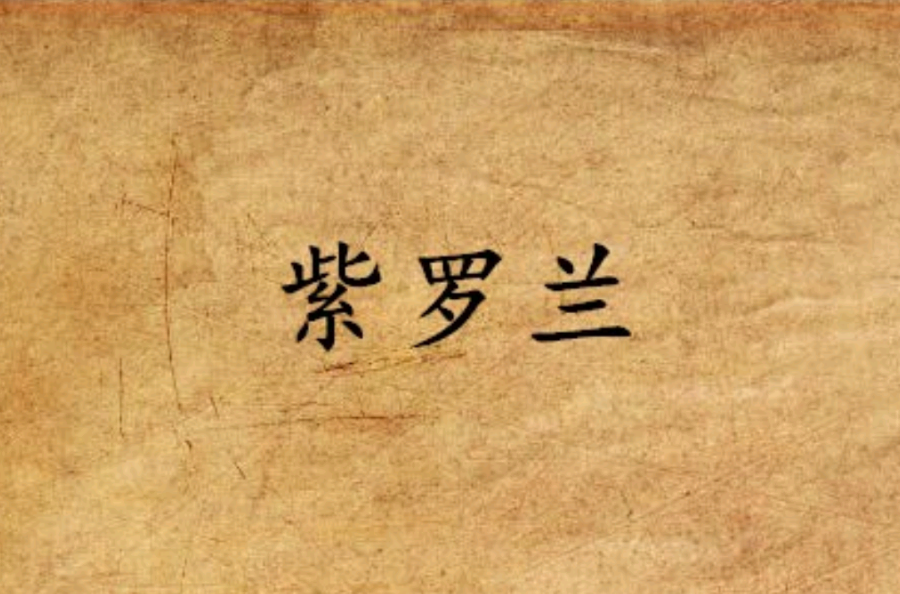 紫罗兰